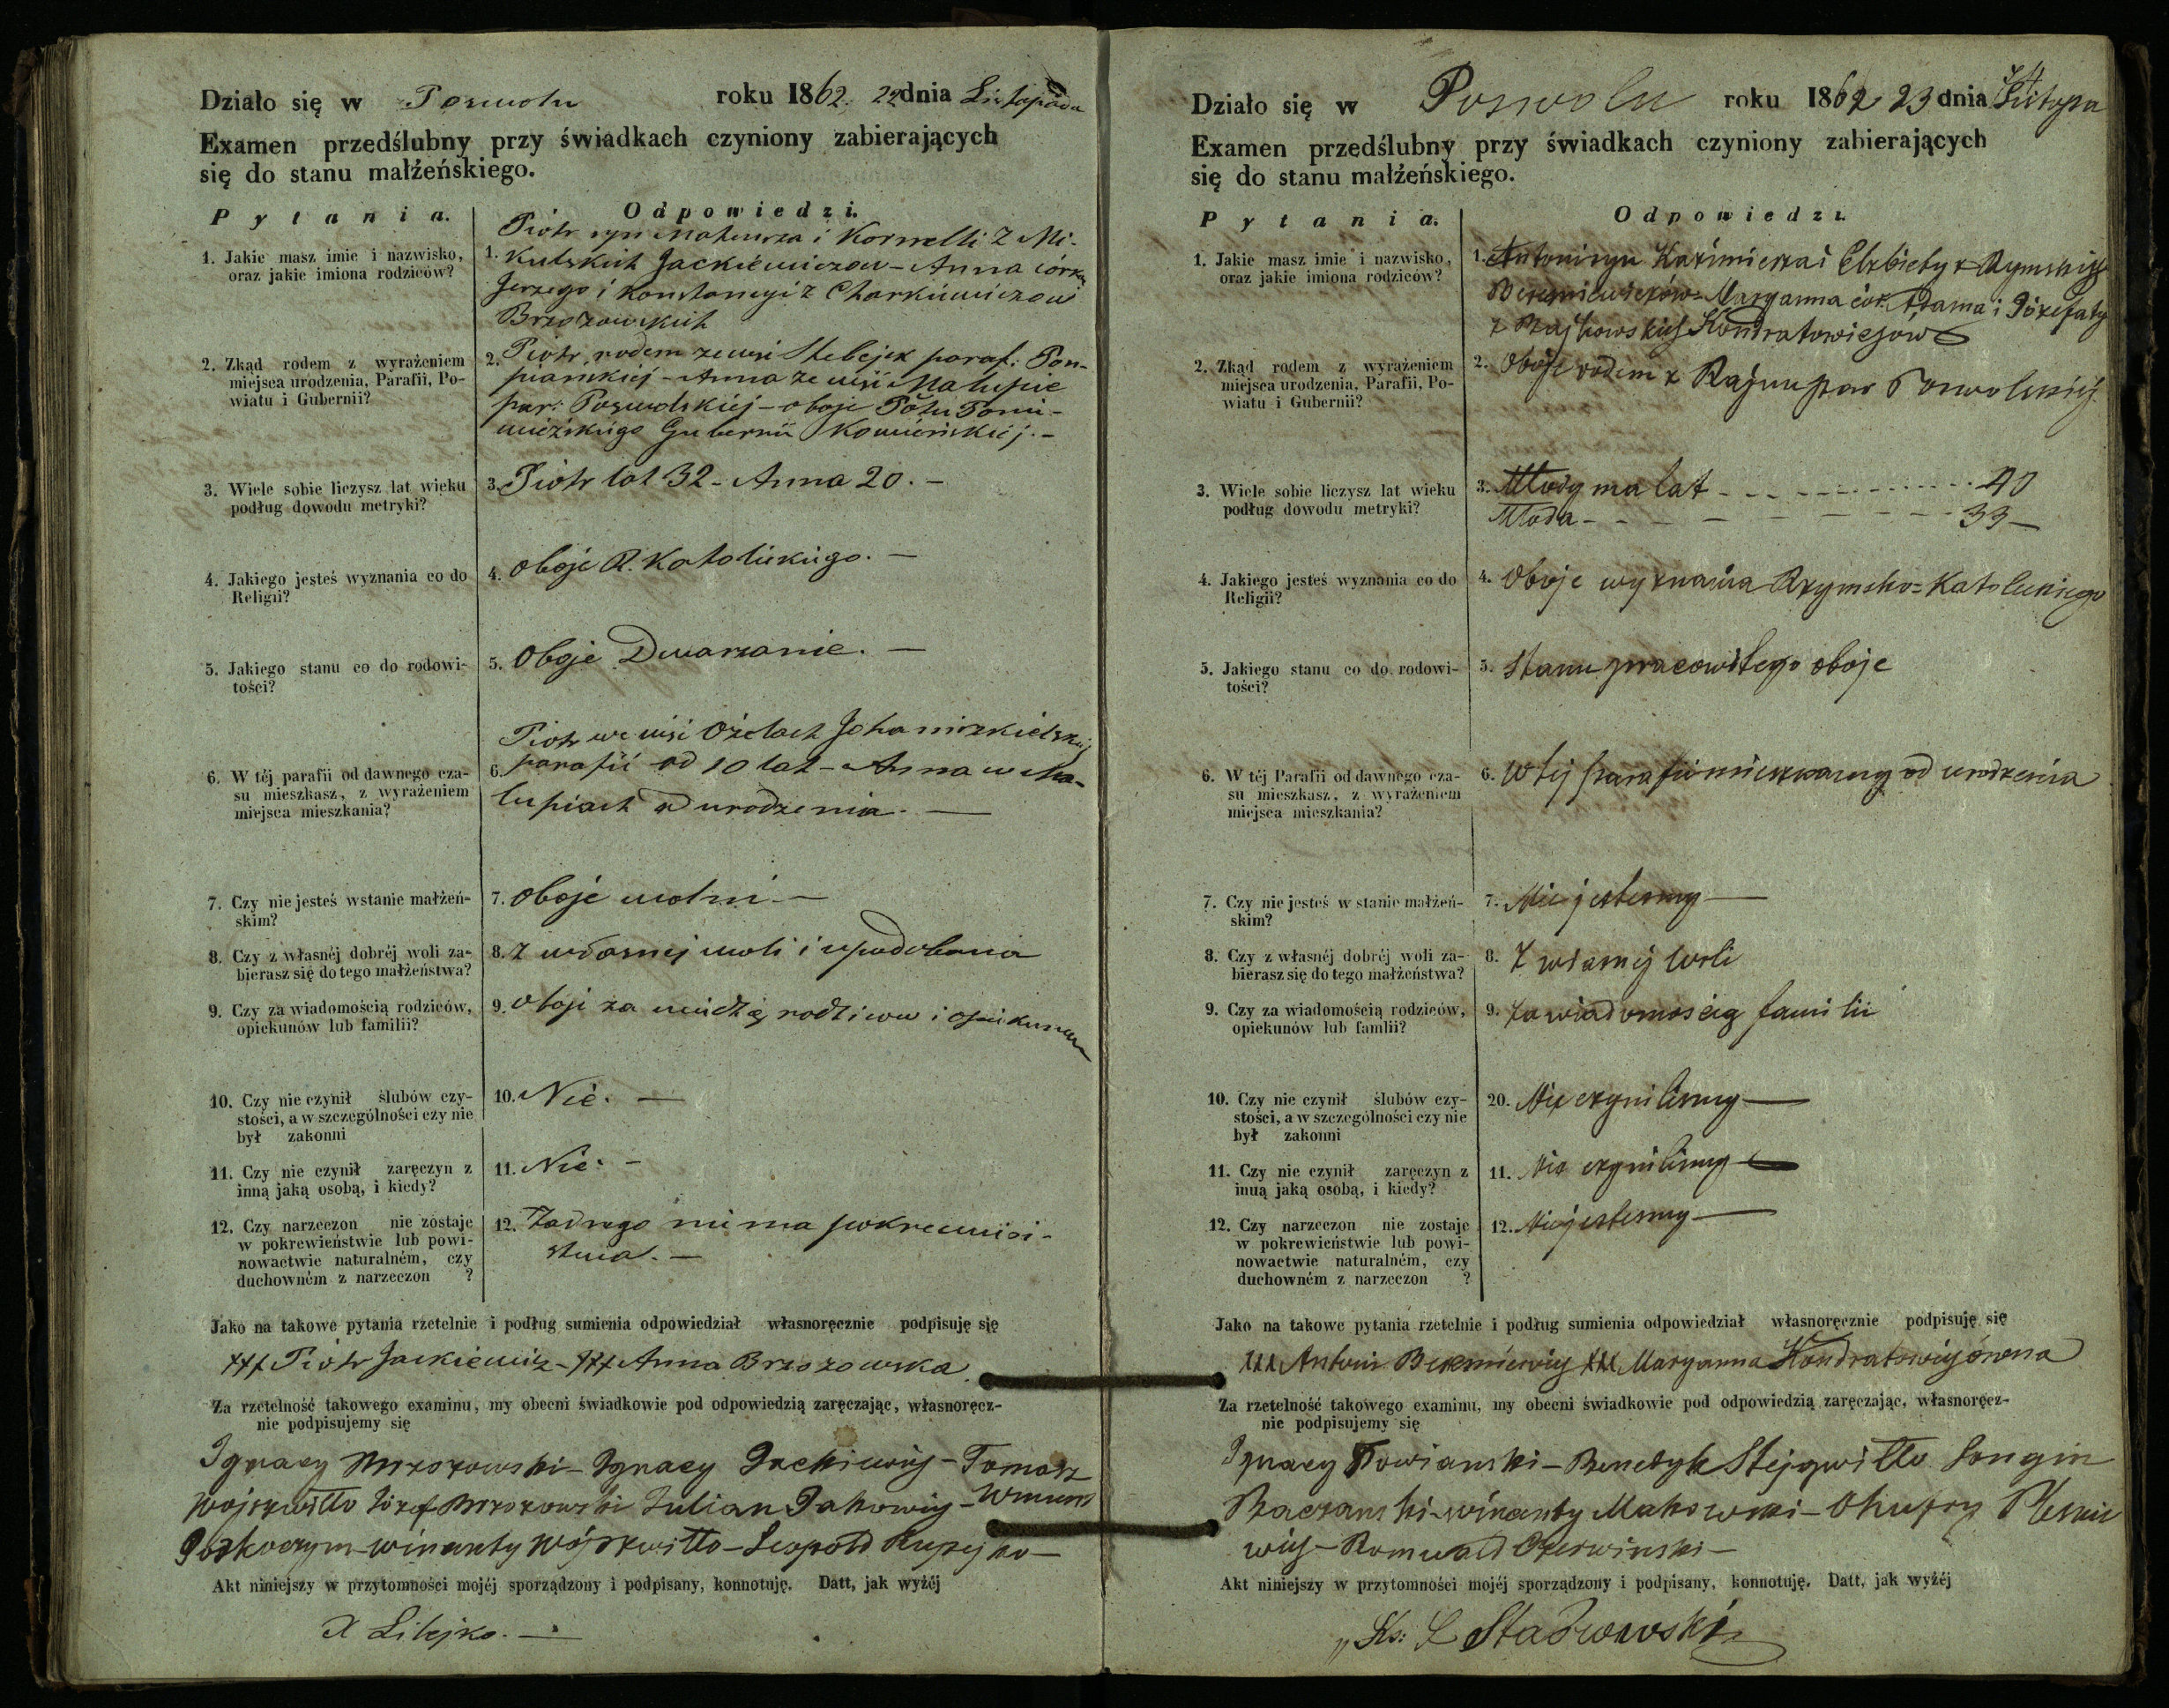 Działo się w Poswolu roku 1862. 22 dnia Listopada
Examen przedślubny przy świadkach czyniony zabierających
się do stanu małżeńskiego.
Pytania. Odpowiedzi.
1. Jakie masz imie i nazwisko,
oraz jakie imiona rodziców?
Piotr syn Mateusza i Kornelli z Mi-
1. kulskich Jackiewiczow - Anna córka
Jerzego i Konstancyi z Charkiewiczow
Brzozowskich
2. Zkąd rodem z wyrażeniem
miejsca urodzenia, Parafii, Po-
wiatu i Gubernii?
2. Piotr rodem ze wsi Stebejek paraf: Pom-
piańskiej - Anna ze wsi Malupie
par: Poswolskiej - oboje Połu Poni-
wieżskiego Gubernii Kowieńskiej. -
3. Wiele sobie liczysz lat wieku
podług dowodu metryki?
3. Piotr lat 32 - Anna 20. -
4. Jakiego jesteś wyznania co do
Religii?
4. oboje R. Katolickiego. -
5. Jakiego stanu co do rodowi-
tości?
5. Oboje Dwarzanie. -
6. W téj parafii od dawnego cza-
su mieszkasz, z wyrażeniem
miejsca mieszkania?
Piotr we wsi Ożelach Johaniszkielskiej
6. parafii od 10 lat - Anna w Ma-
lupiach od urodzenia. -
7. Czy nie jesteś wstanie małżeń-
skim?
7. oboje wolni -
8. Czy z własnéj dobréj woli za-
bierasz się do tego małżeństwa?
8. z własnej woli i upodobania
9. Czy za wiadomością rodziców,
opiekunów lub familii?
9. oboje za wiedzą rodzicow i opiekunow
10. Czy nie czynił ślubów czy-
stości, a w szczególności czy nie
był zakonni
10. Nie. -
11. Czy nie czynił zaręczyn z
inną jaką osobą, i kiedy?
11. Nie. -
12. Czy narzeczon nie zostaje
w pokrewieństwie lub powi-
nowactwie naturalném, czy
duchowném z narzeczon ?
12. Żadnego nie ma pokrewień-
stwa. -
Jako na takowe pytania rzetelnie i podług sumienia odpowiedział własnoręcznie podpisuję się
+++ Piotr Jackiewicz - +++ Anna Brzozowska
Za rzetelność takowego examinu, my obecni świadkowie pod odpowiedzią zaręczając, własnoręcz-
nie podpisujemy się
Ignacy Brzozowski - Ignacy Jackiewicz - Tomasz
Wojszwiłło Józef Brzozowski Julian
Wincenty Wójszwiłło - Leopold
Akt niniejszy w przytomności mojéj sporządzony i podpisany, konnotuję. Datt, jak wyżéj
X Libejko. -
Działo się w Poswolu roku 1862 23 dnia Listopa
Examen przedślubny przy świadkach czyniony zabierających
się do stanu małżeńskiego.
Pytania. Odpowiedzi.
1. Jakie masz imie i nazwisko,
oraz jakie imiona rodziców?
1. Antoni syn Kazimierza i Elżbiety z Rymskich
Maryanna cór. Adama i Józefaty
z Kondratowiczow
2. Zkąd rodem z wyrażeniem
miejsca urodzenia, Parafii, Po-
wiatu i Gubernii?
2. Oboje rodem z par Poswolskiej
3. Wiele sobie liczysz lat wieku
podług dowodu metryki?
3. Młody ma lat - - - 40
Młoda - - - 33 -
4. Jakiego jesteś wyznania co do
Religii?
4. Oboje wyznania Rzymsko=Katolickiego
5. Jakiego stanu co do rodowi-
tości?
5. Stanu pracowitego oboje
6. W téj Parafii od dawnego cza-
su mieszkasz, z wyrażeniem
miejsca mieszkania?
6. W tej parafii mieszkamy od urodzenia
7. Czy nie jesteś w stanie małżeń-
skim?
7. Nie jestesmy -
8. Czy z własnéj dobréj woli za-
bierasz się do tego małżeństwa?
8. Z własnej woli
9. Czy za wiadomością rodziców,
opiekunów lub famlii?
9. Za wiadomoscią familii
10. Czy nie czynił ślubów czy-
stości, a w szczególności czy nie
był zakonni
20. Nie czynilismy -
11. Czy nie czynił zaręczyn z
inuą jaką osobą, i kiedy?
11. Nie czynilismy -
12. Czy narzeczon nie zostaje
w pokrewieństwie lub powi-
nowactwie naturalném, czy
duchowném z narzeczon ?
12. Nie jestesmy -
Jako na takowe pytania rzetelnie i podług sumienia odpowiedział własnoręcznie podpisuję się
xxx Antoni xxx Maryanna Kondratowiczówna
Za rzetelność takowego examinu, my obecni świadkowie pod odpowiedzią zaręczając, własnoręcz-
nie podpisujemy się
Ignacy Towianski - Benedykt Stejgwiłło Longin
Raczanski - Wincenty Makowski - Onufry Pleskie
wicz - Romuald Czerwinski -
Akt niniejszy w przytomności mojéj sporządzony i podpisany, konnotuję. Datt, jak wyżéj
Ks: Stadrowski